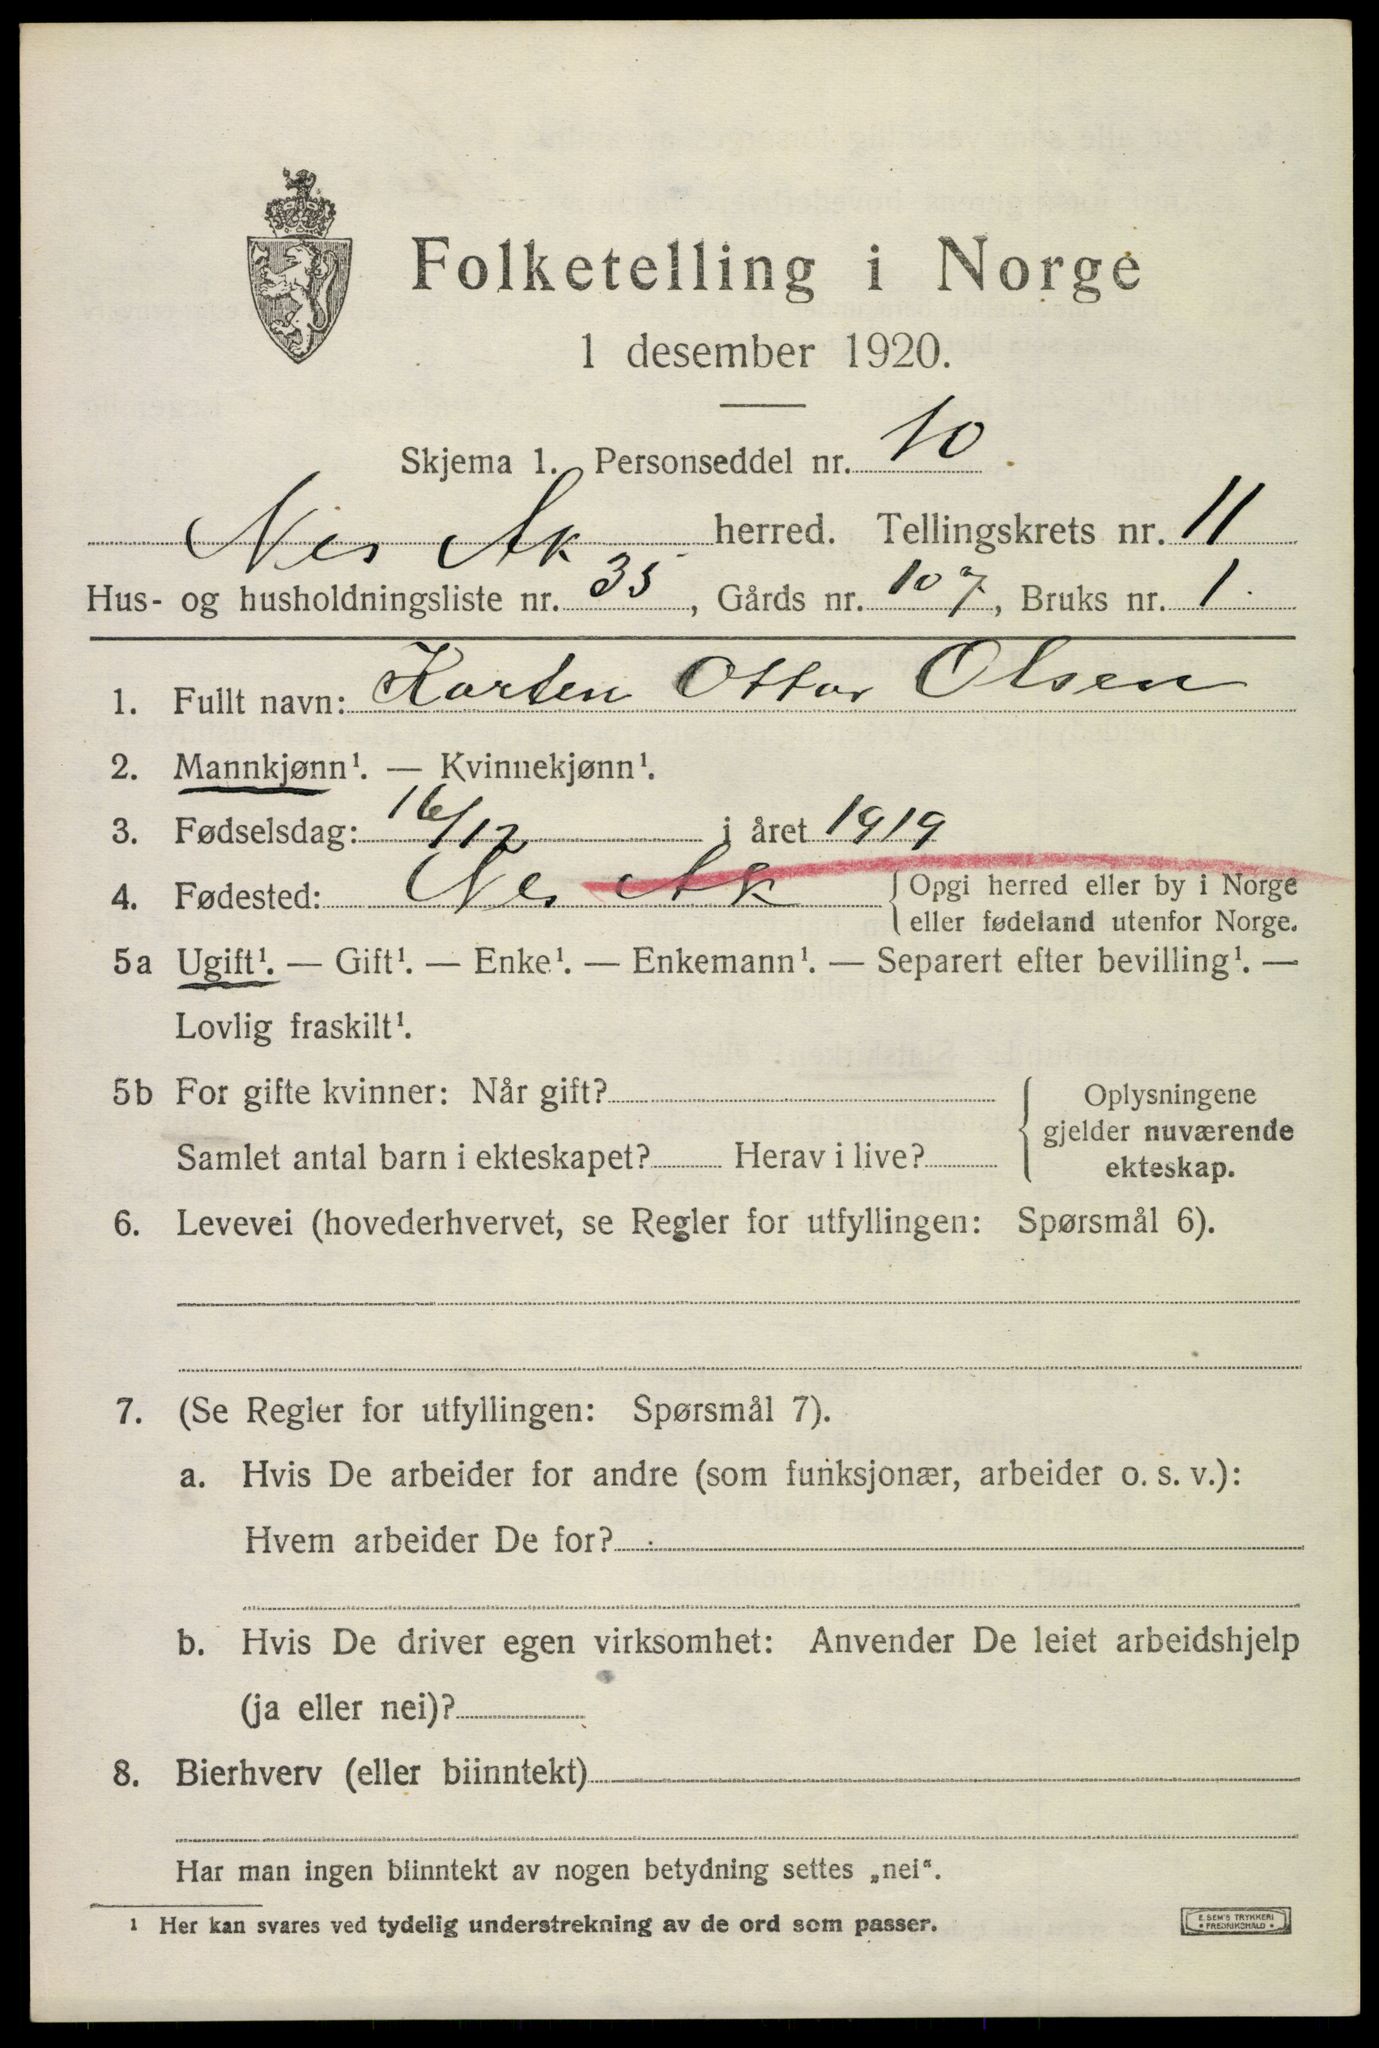 Folketelling i Norge
1 desember 1920.
Skjema 1. Personseddel nr. 10
Nes Ak herred. Tellingskrets nr. 11
Hus- og husholdningsliste nr. 35, Gårds nr. 107, Bruks nr. 1.
1. Fullt navn: Karsten Ottar Olsen
2. Mannkjønn¹. — Kvinnekjønn¹.
3. Fødselsdag: 16/12 i året 1919
4. Fødested: Nes Ak {Opgi herred eller by i Norge
eller fødeland utenfor Norge.
5a Ugift¹. — Gift¹. — Enke¹. — Enkemann¹. — Separert efter bevilling¹. —
Lovlig fraskilt¹.
5b For gifte kvinner: Når gift?
Samlet antal barn i ekteskapet? Herav i live?
{Oplysningene
gjelder nuværende
ekteskap.
6. Levevei (hovederhvervet, se Regler for utfyllingen: Spørsmål 6).
7. (Se Regler for utfyllingen: Spørsmål 7).
a. Hvis De arbeider for andre (som funksjonær, arbeider o. s. v.):
Hvem arbeider De for?
b. Hvis De driver egen virksomhet: Anvender De leiet arbeidshjelp
(ja eller nei)?
8. Bierhverv (eller biinntekt)
Har man ingen biinntekt av nogen betydning settes „nei“.
1 Her kan svares ved tydelig understrekning av de ord som passer.
E. SEM'S TRYKKERI
• FREDRIKSHALD •